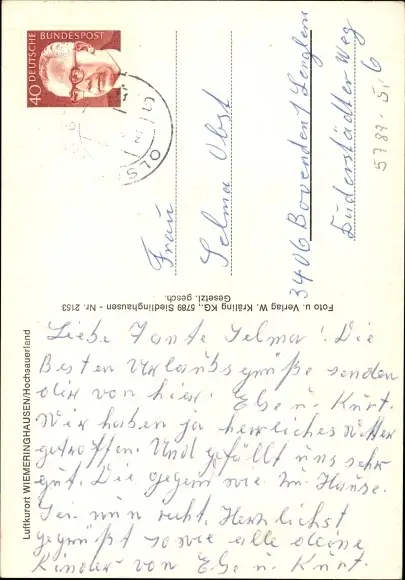 DEUTSCHE BUNDESPOST
40
OLS
Frau
Selma Obst
3406 Bovenden / Lenglern
Duderstädter Weg
5787-5,6
Foto u. Verlag W. Kräling KG., 5789 Siedlinghausen - Nr. 2153
Gesetzl. gesch.
Luftkurort WIEMERINGHAUSEN/Hochsauerland
Liebe Tante Selma! Die
Besten Urlaubsgrüße senden
dir von hier. Else u. Kurt.
Wir haben ja herrliches Wetter
getroffen. Und gefällt uns sehr
gut. Die gegend wie zu Hause.
nun recht Herzlichst
gegrüßt sowie alle deine
Kinder von Else u. Kurt.